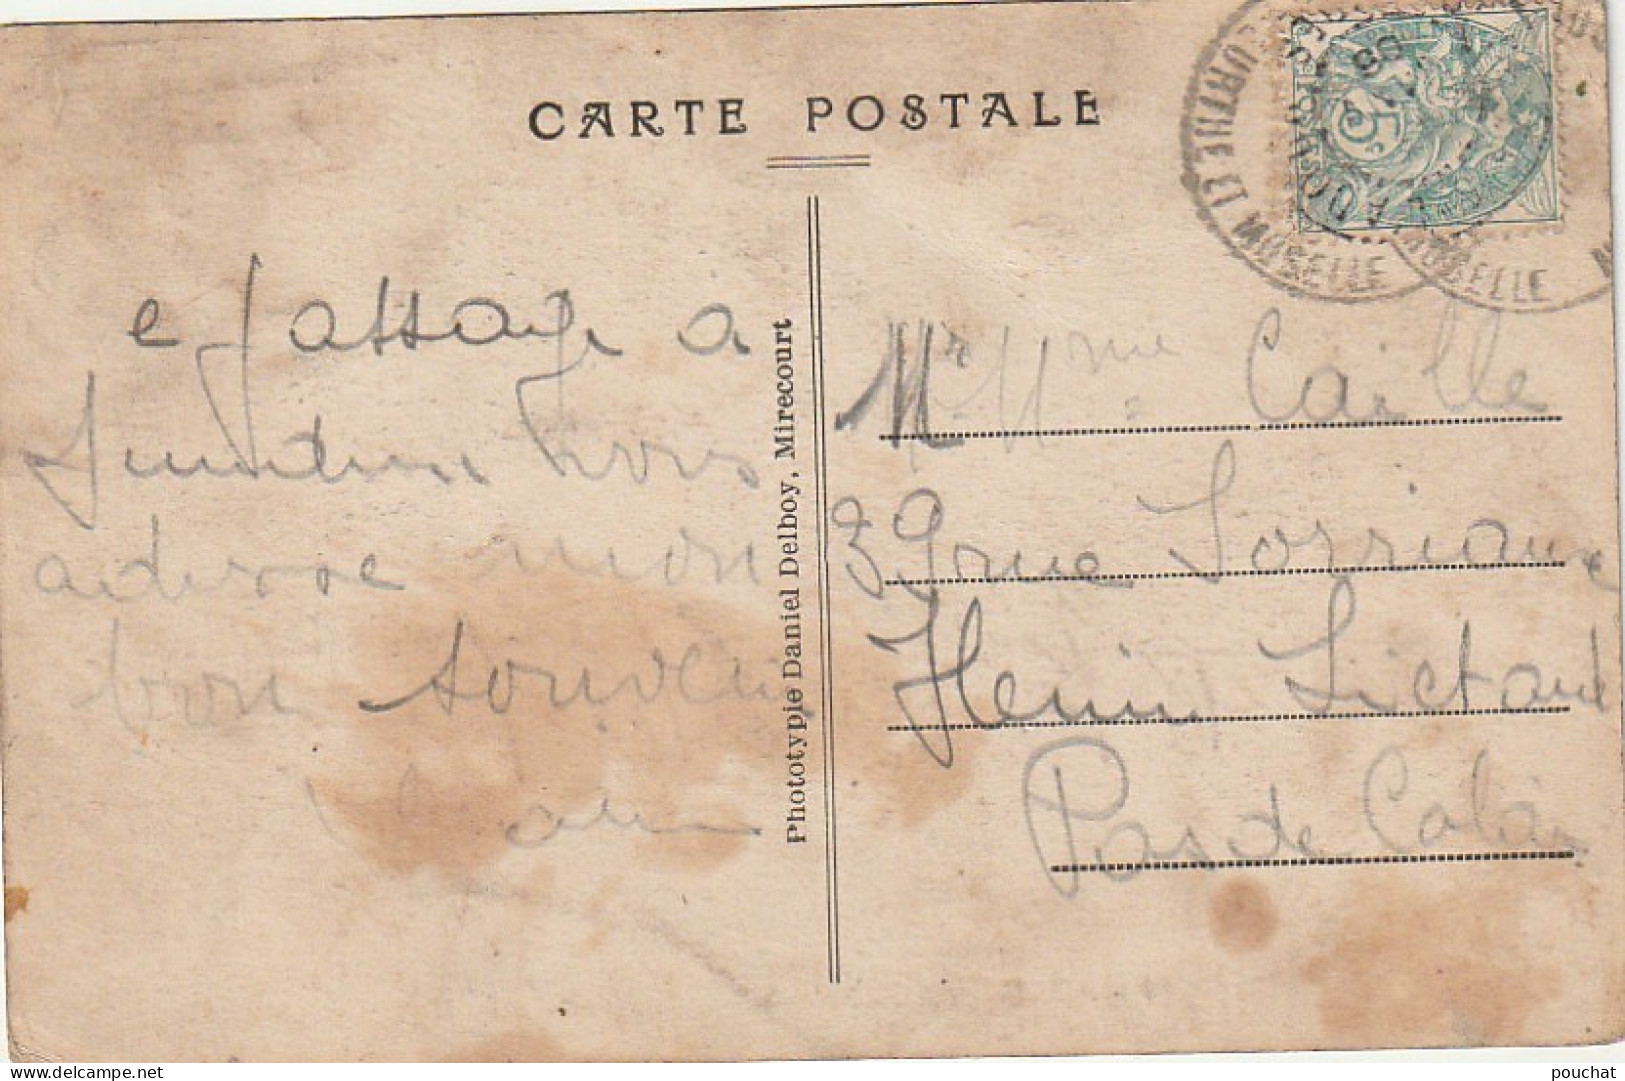 CARTE POSTALE
e passage à
vous
adresse mon
bon souvenir
Phototypie Daniel Delboy, Mirecourt
Mr Mme Caille
39 rue
Henin Liétard
Pas de Calais
MEURTHE ET MOSELLE
MOSELLE
5c
delcampe.net
pouchat